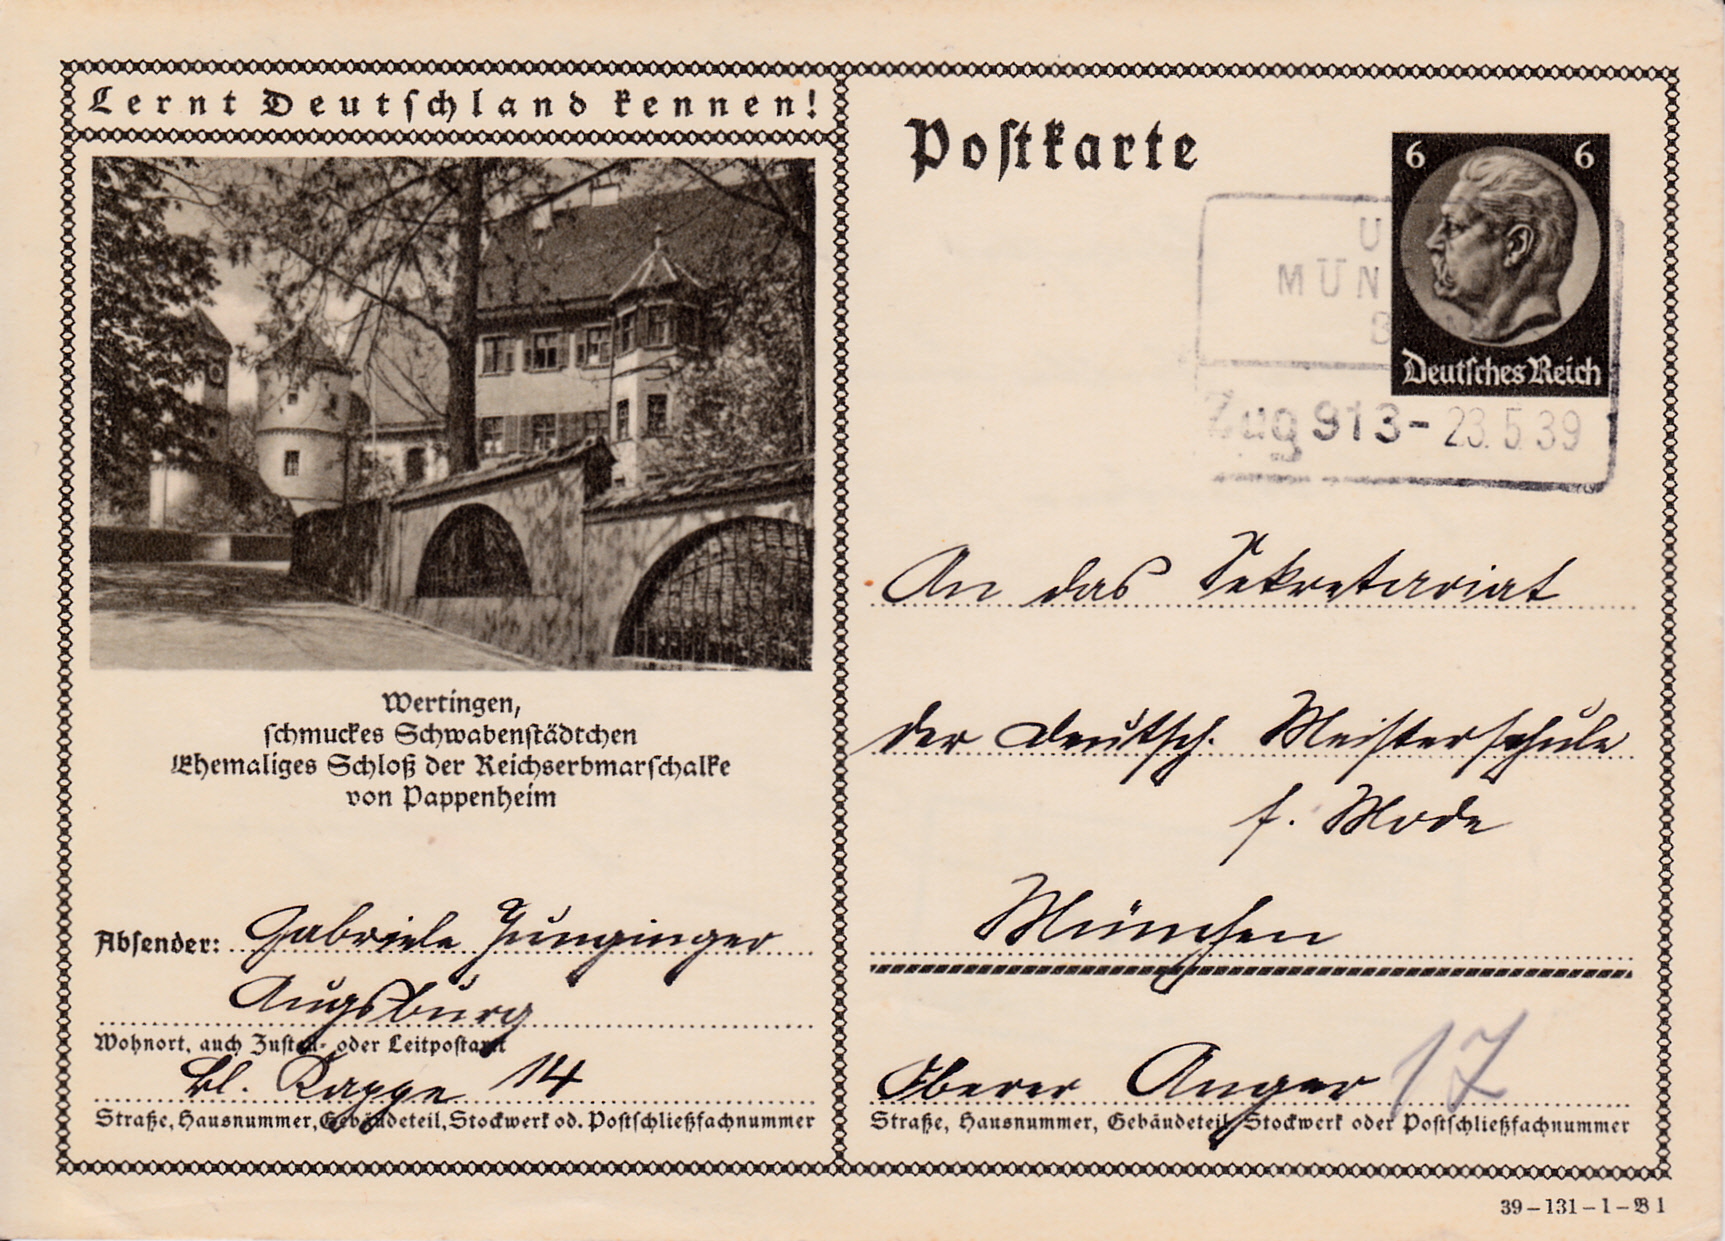 Lernt Deutschland kennen!
Wertingen,
schmuckes Schwabenstädtchen
Ehemaliges Schloß der Reichserbmarschalke
von Pappenheim
Absender: Gabriele Junginger
Augsburg
Wohnort, auch Zustell- oder Leitpostamt
kl. Rappe 14
Straße, Hausnummer, Gebäudeteil, Stockwerk od. Postschließfachnummer
Postkarte
6 6
Deutsches Reich
MÜN
Zug 913- 23.5.39
An das Sekretariat
der Deutsch. Meisterschule
f. Mode
München
Oberer Anger 17
Straße, Hausnummer, Gebäudeteil, Stockwerk oder Postschließfachnummer
39-131-1-B 1